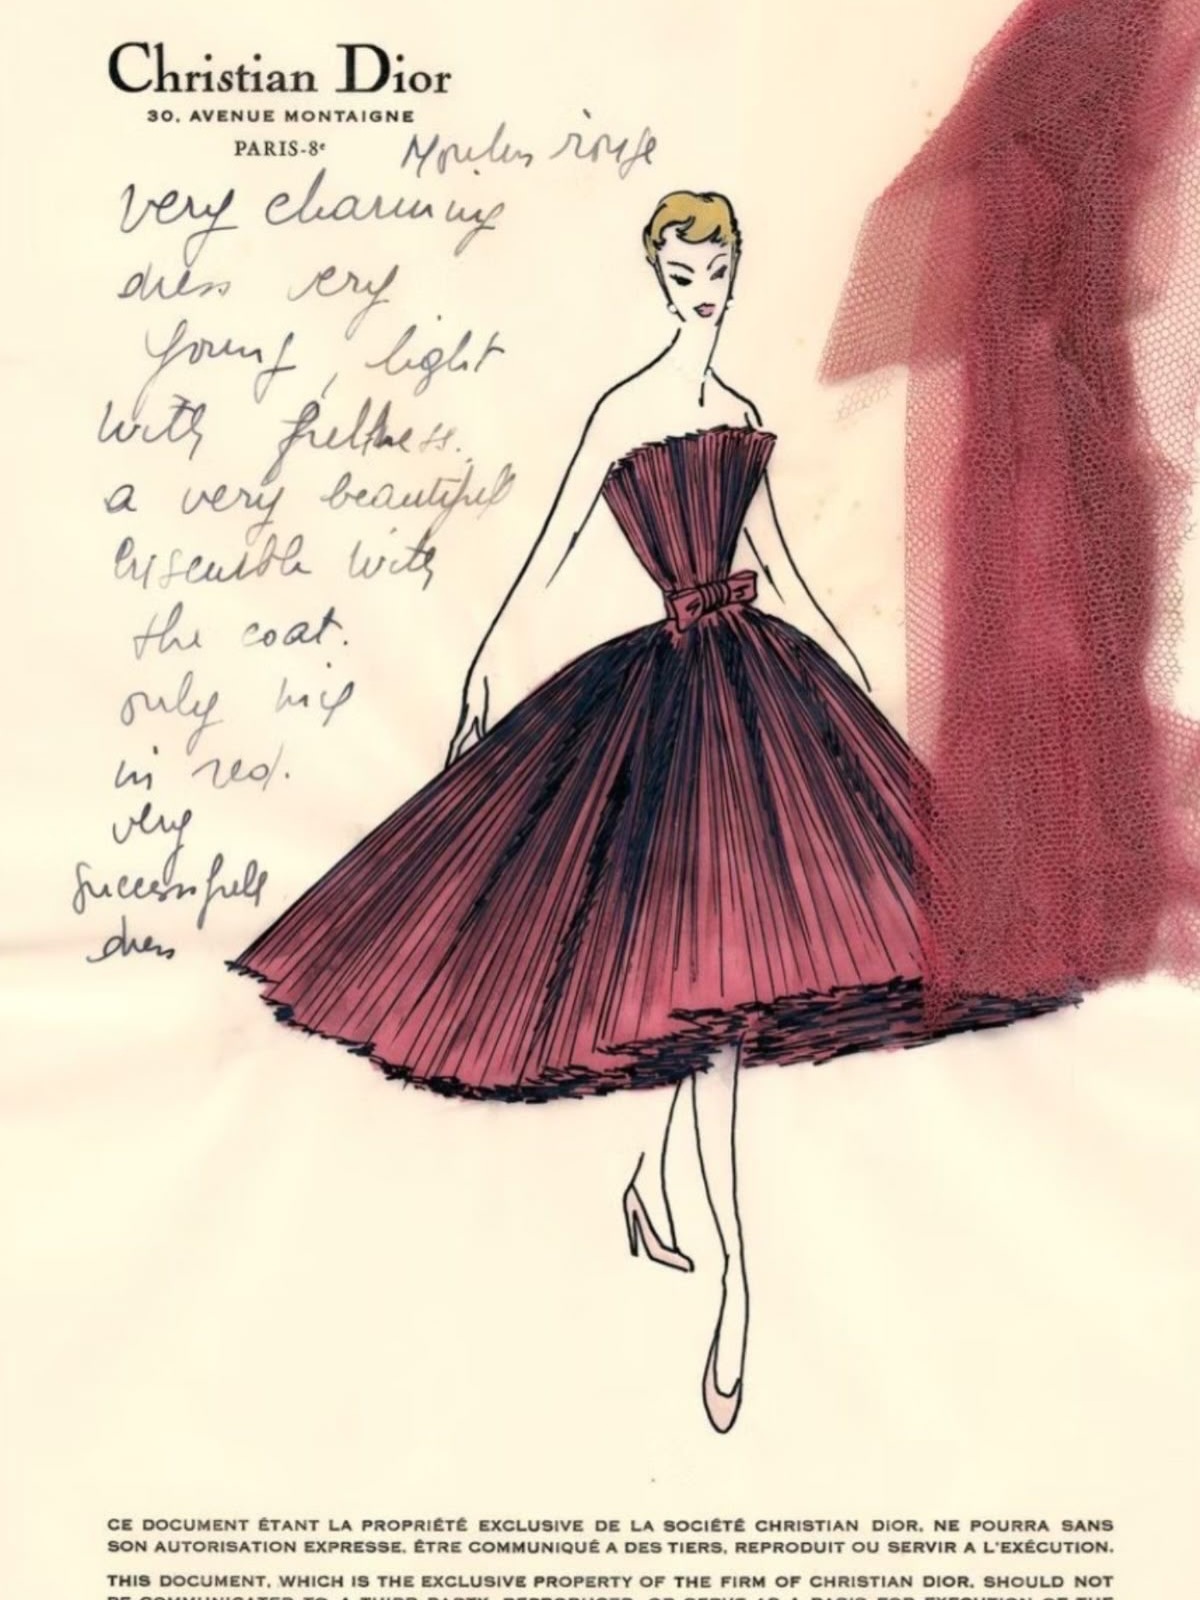 Christian Dior
30, AVENUE MONTAIGNE
PARIS-8e
Moulin rouge
very charming
dress very
young, light
with fullness.
a very beautiful
Ensemble with
the coat.
only nice
in red.
very
successfull
dress
CE DOCUMENT ÉTANT LA PROPRIÉTÉ EXCLUSIVE DE LA SOCIÉTÉ CHRISTIAN DIOR, NE POURRA SANS
SON AUTORISATION EXPRESSE, ÊTRE COMMUNIQUÉ A DES TIERS, REPRODUIT OU SERVIR A L'EXÉCUTION.
THIS DOCUMENT, WHICH IS THE EXCLUSIVE PROPERTY OF THE FIRM OF CHRISTIAN DIOR, SHOULD NOT